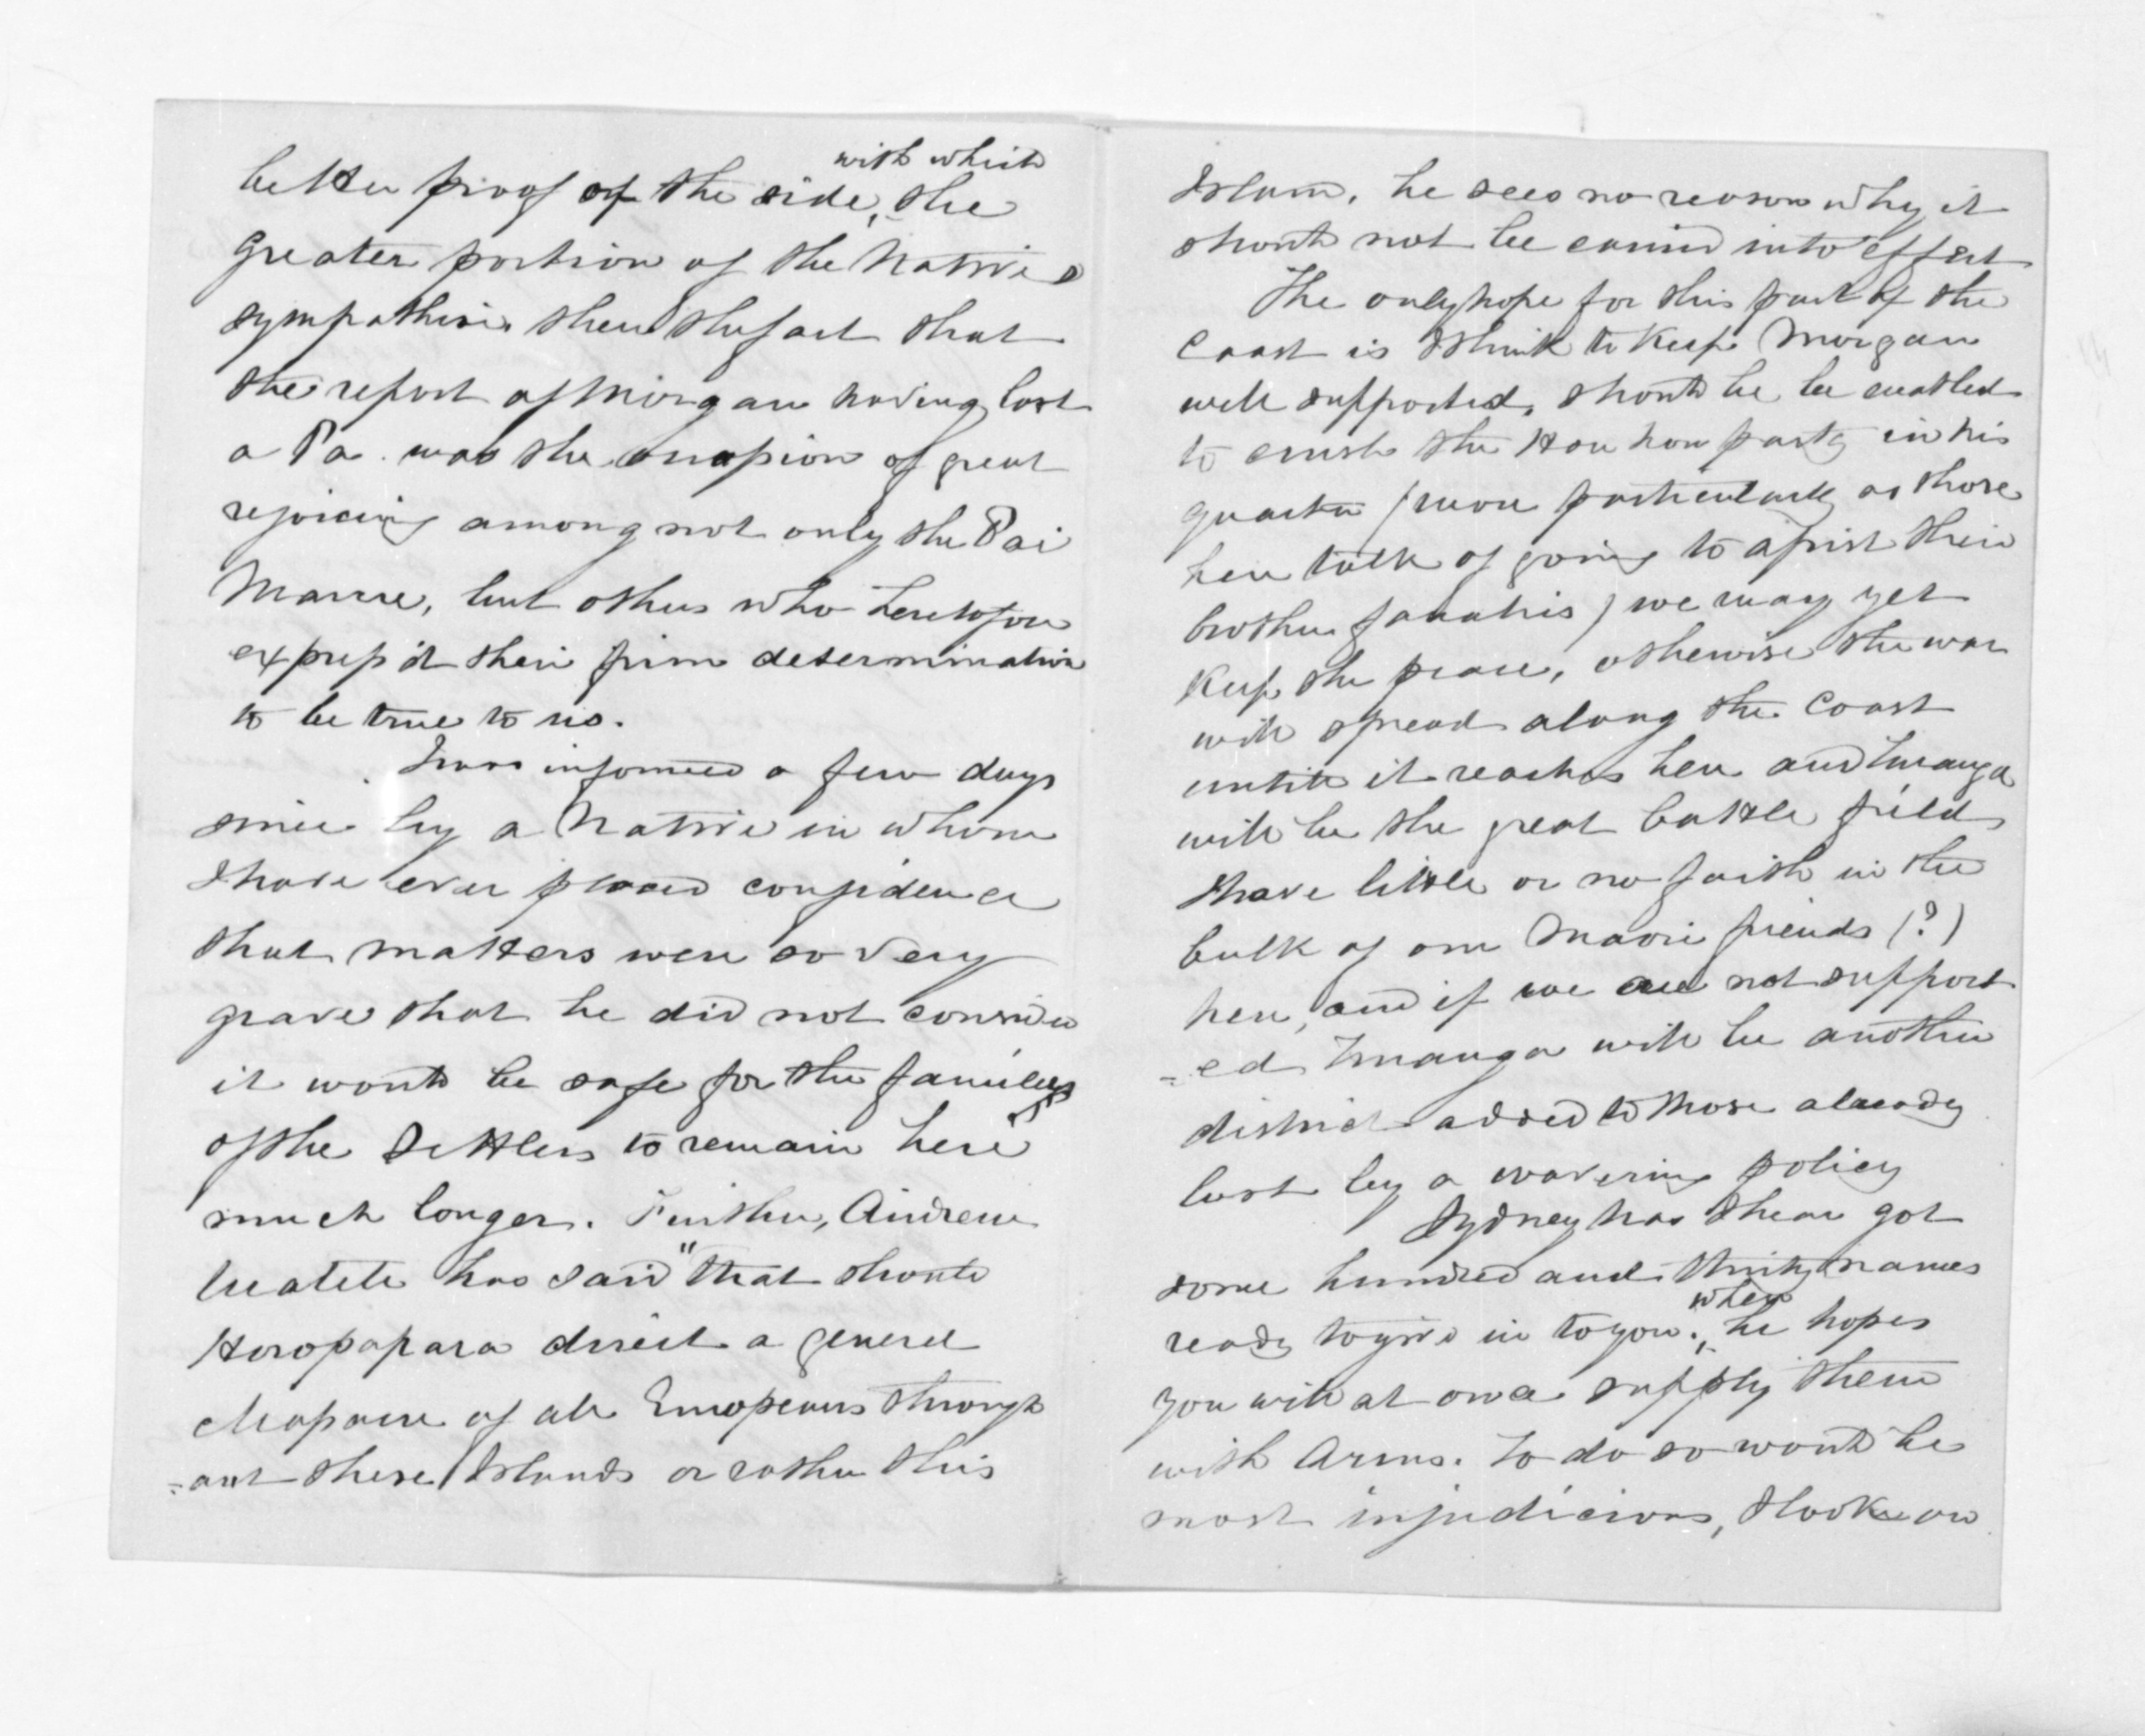 better proof of the side, with which the
greater portion of the Natives
sympathise, then the fact that
the report of Morgan having lost
a Pa. was the occasion of great
rejoicing among not only the Pai
Marire, but others who heretofore
express'd their firm determination
to be true to us.
I was informed a few days
since by a Native in whom
I have ever placed confidence
that matters were so very
grave that he did not consider
it would be safe for the families
of the Settlers to remain here
much longer. Further, Andrew
has said "that should
direct a general
Massacre of all Europeans through
=out these Islands or rather this
Island, he sees no reason why it
should not be carried into effect
The only hope for this part of the
Coast is I think to keep Morgan
well supported, should he be enabled
to crush the Hau hau party in his
quarter (more particularly as those
here talk of going to assist their
brother fanatics) we may yet
keep the peace, otherwise the war
will spread along the Coast
until it reaches here and Turanga
will be the great battle field
I have little or no faith in the
bulk of our Maori friends (?)
here, and if we are not support
=ed Turanga will be another
district added to those already
lost by a wavering policy
Sydney has I hear got
some hundred and thirty names
ready to give in to you. when he hopes
you will at once supply them
with Arms. To do so would be
most injudicious, I look on